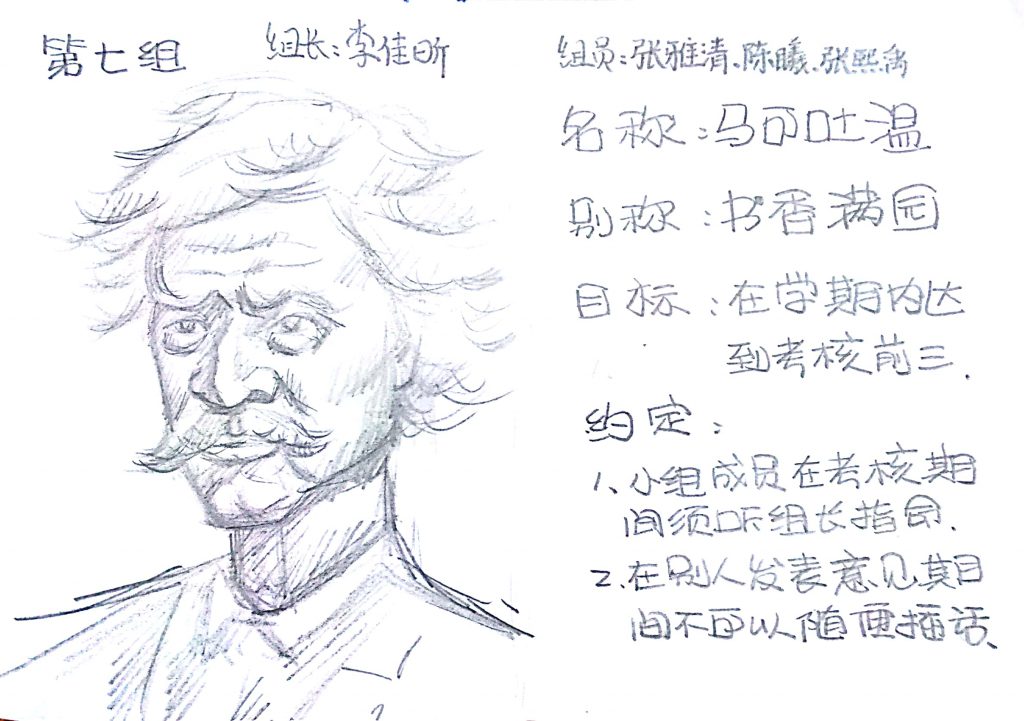 第七组
组长:李佳昕
组员:张雅清、陈曦、张熙禹
名称:马可吐温
别称:书香满园
目标:在学期内达
到考核前三.
约定:
1、小组成员在考核期
间须听组长指命.
2.在别人发表意见其日
间不可以随便插话、